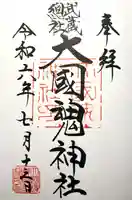 奉拝
武蔵
総社
大國魂神社
令和六年七月十三日